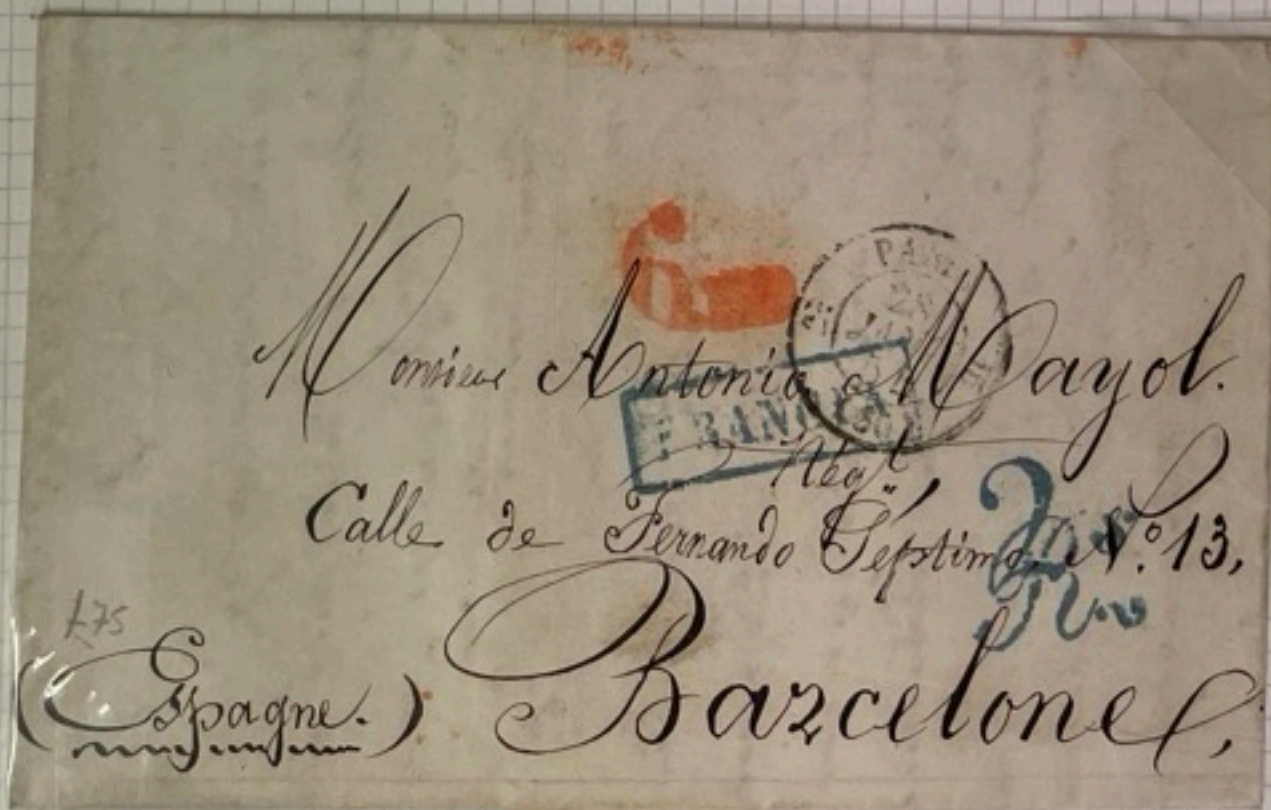 6
PARIS
FRANCIA
Monsieur Antonio Mayol.
Negt.,
Calle de Fernando Septimo Nº. 13,
Barcelone,
£75
(Espagne.)